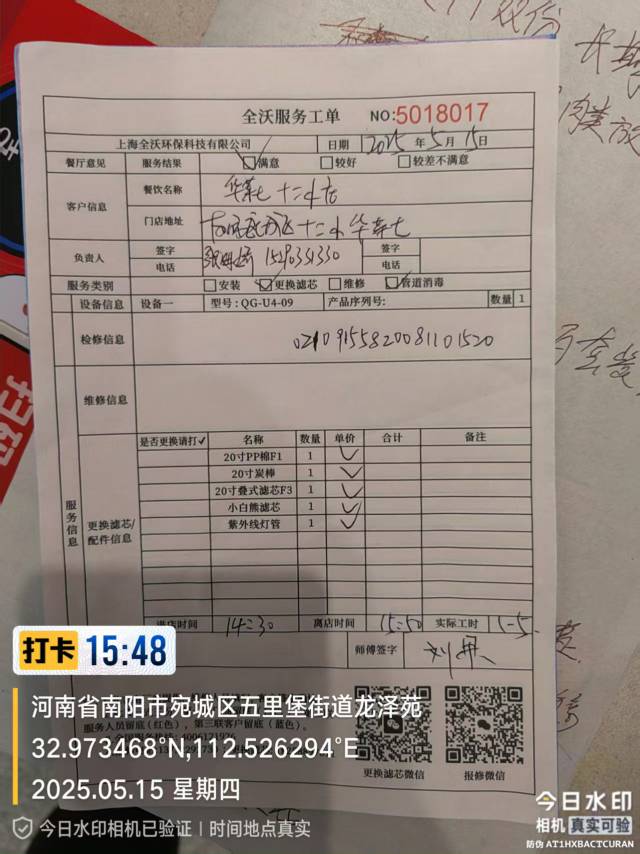 全沃服务工单 NO:5018017
上海全沃环保科技有限公司 日期 2025 年 5 月 15 日
餐厅意见 服务结果 ☑满意 □较好 □较差不满意
客户信息 餐饮名称 华莱士十二小店
门店地址 十二小华莱士
负责人 签字 签字
电话 15290331330 电话
服务类别 □安装 ☑更换滤芯 □维修 ☑管道消毒
设备信息 设备一 型号:QG-U4-09 产品序列号: 数量 1
检修信息 02109155820081101520
维修信息
服务信息
更换滤芯/配件信息
是否更换请打✓ 名称 数量 单价 合计 备注
20寸PP棉F1 1 ✓
20寸炭棒 1 ✓
20寸叠式滤芯F3 1 ✓
小白熊滤芯 1 ✓
紫外线灯管 1 ✓
进店时间 14:30 离店时间 15:50 实际工时 1.5
师傅签字
服务人员留底(红色),第三联客户留底(蓝色)。
更换滤芯微信 报修微信
打卡 15:48
河南省南阳市宛城区五里堡街道龙泽苑
32.973468°N,112.526294°E
2025.05.15 星期四
今日水印相机已验证 | 时间地点真实
今日水印
相机 真实可验
防伪 AT1HXBACTCURAN
扫码